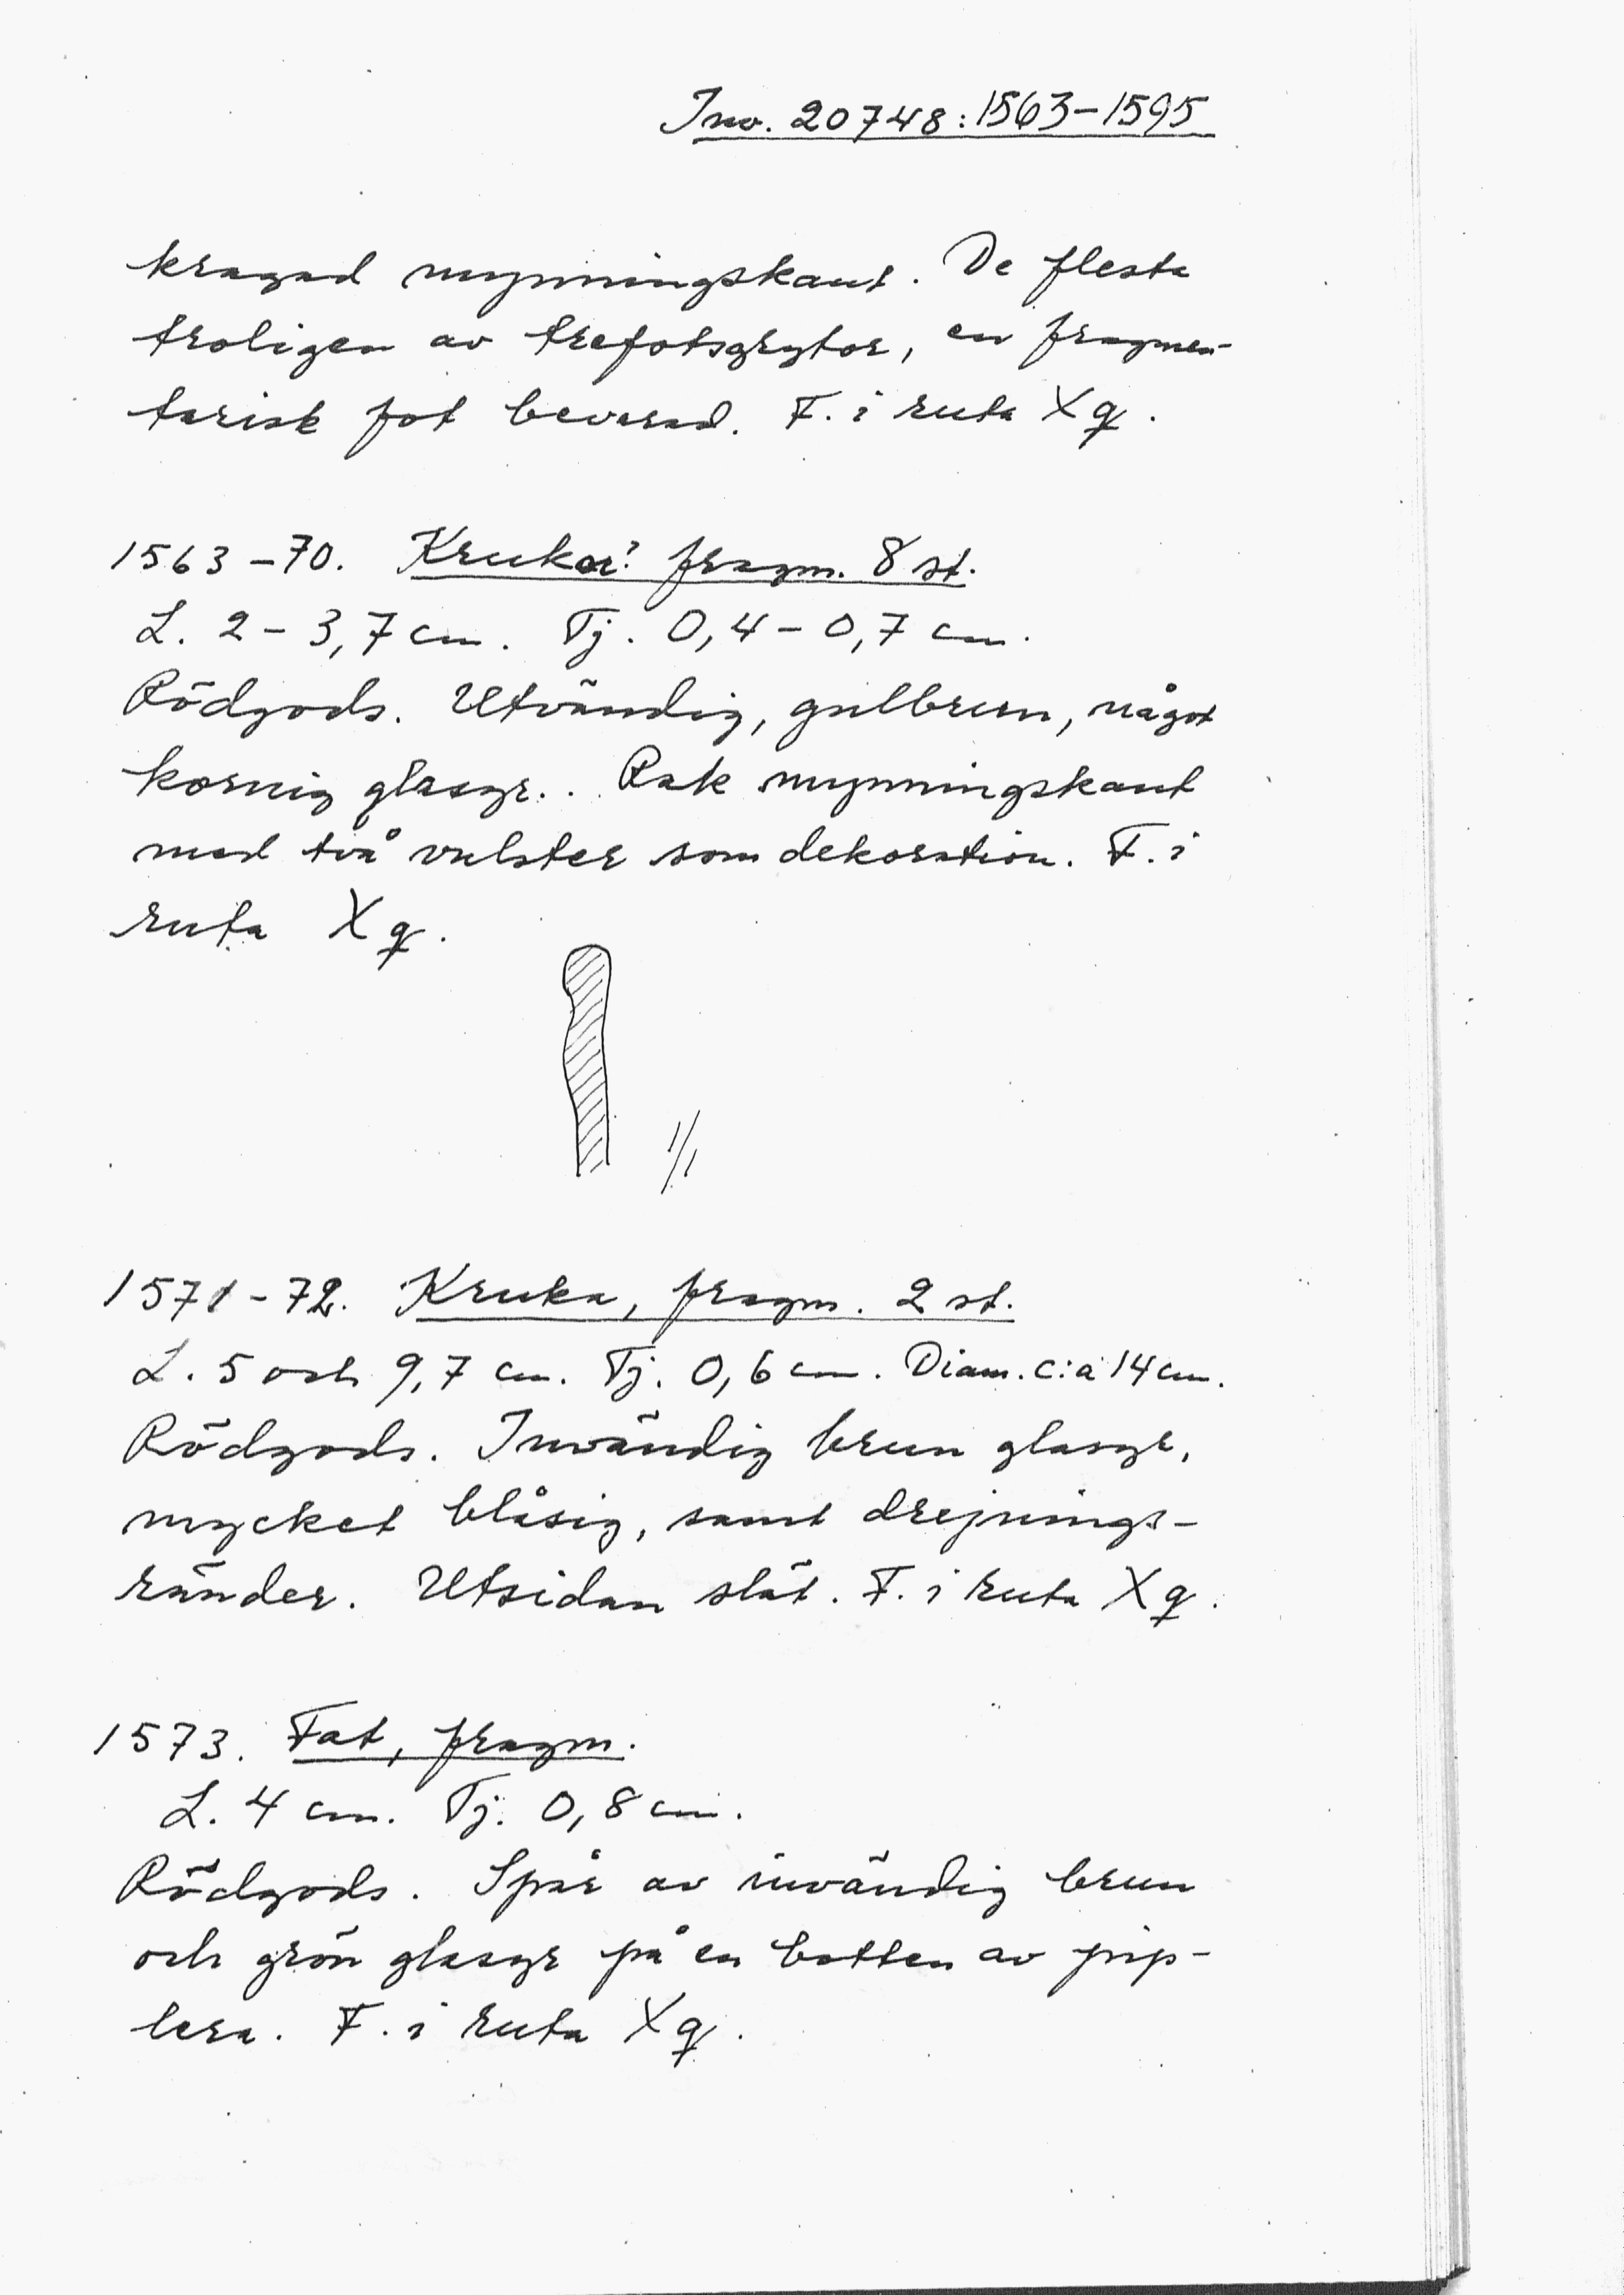 Inv. 20748:1563-1595
kragad mynningskant. De flesta
troligen av trefotsgrytor, en fragmen-
tarisk fot bevarad. F. i ruta Xq.
1563-70. Krukor? fragm. 8 st.
L. 2-3,7 cm. Tj. 0,4-0,7 cm.
Rödgods. Utvändig, gulbrun, något
kornig glasyr. Rak mynningskant
med två vulster som dekoration. F. i
ruta Xq.
1/1
1571-72. Kruka, fragm. 2 st.
L. 5 och 9,7 cm. Tj. 0,6 cm. Diam. c:a 14 cm.
Rödgods. Invändig brun glasyr,
mycket blåsig, samt drejnings-
ränder. Utsidan slät. F. i ruta Xq.
1573. Fat, fragm.
L. 4 cm. Tj. 0,8 cm.
Rödgods. Spår av invändig brun
och grön glasyr på en botten av pip-
lera. F. i ruta Xq.